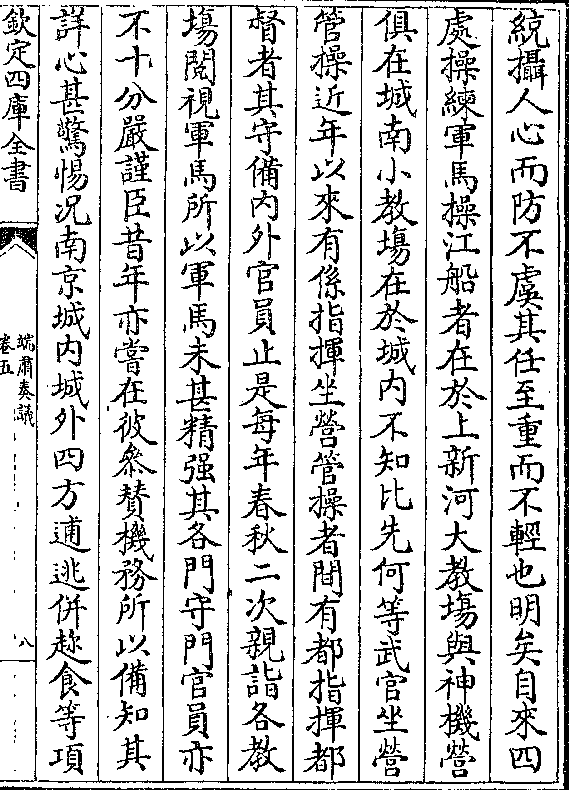 統攝人心而防不虞其任至重而不輕也明矣自來四
處操練軍馬操江船者在於上新河大教場與神機營
俱在城南小教場在於城内不知比先何等武官坐營
管操近年以來有係指揮坐營管操者間有都指揮都
督者其守備内外官員止是每年春秋二次親詣各教
場閱視軍馬所以軍馬未甚精强其各門守門官員亦
不十分嚴謹臣昔年亦嘗在彼叅賛機務所以備知其
詳心甚驚惕况南京城内城外四方逋逃併趂食等項
欽定四庫全書
端肅奏議
卷五
八